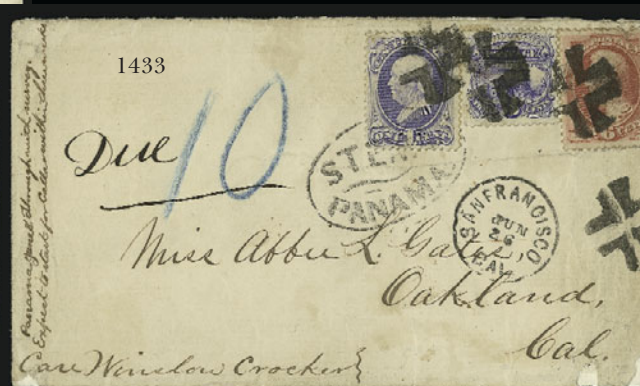 1433
Due 10
STEAM
PANAMA
SAN FRANCISCO
JUN
26
CAL
Miss Abbie L. Gates,
Oakland,
Cal.
Care Winslow Crocker
Panama
through with
Expect to start for